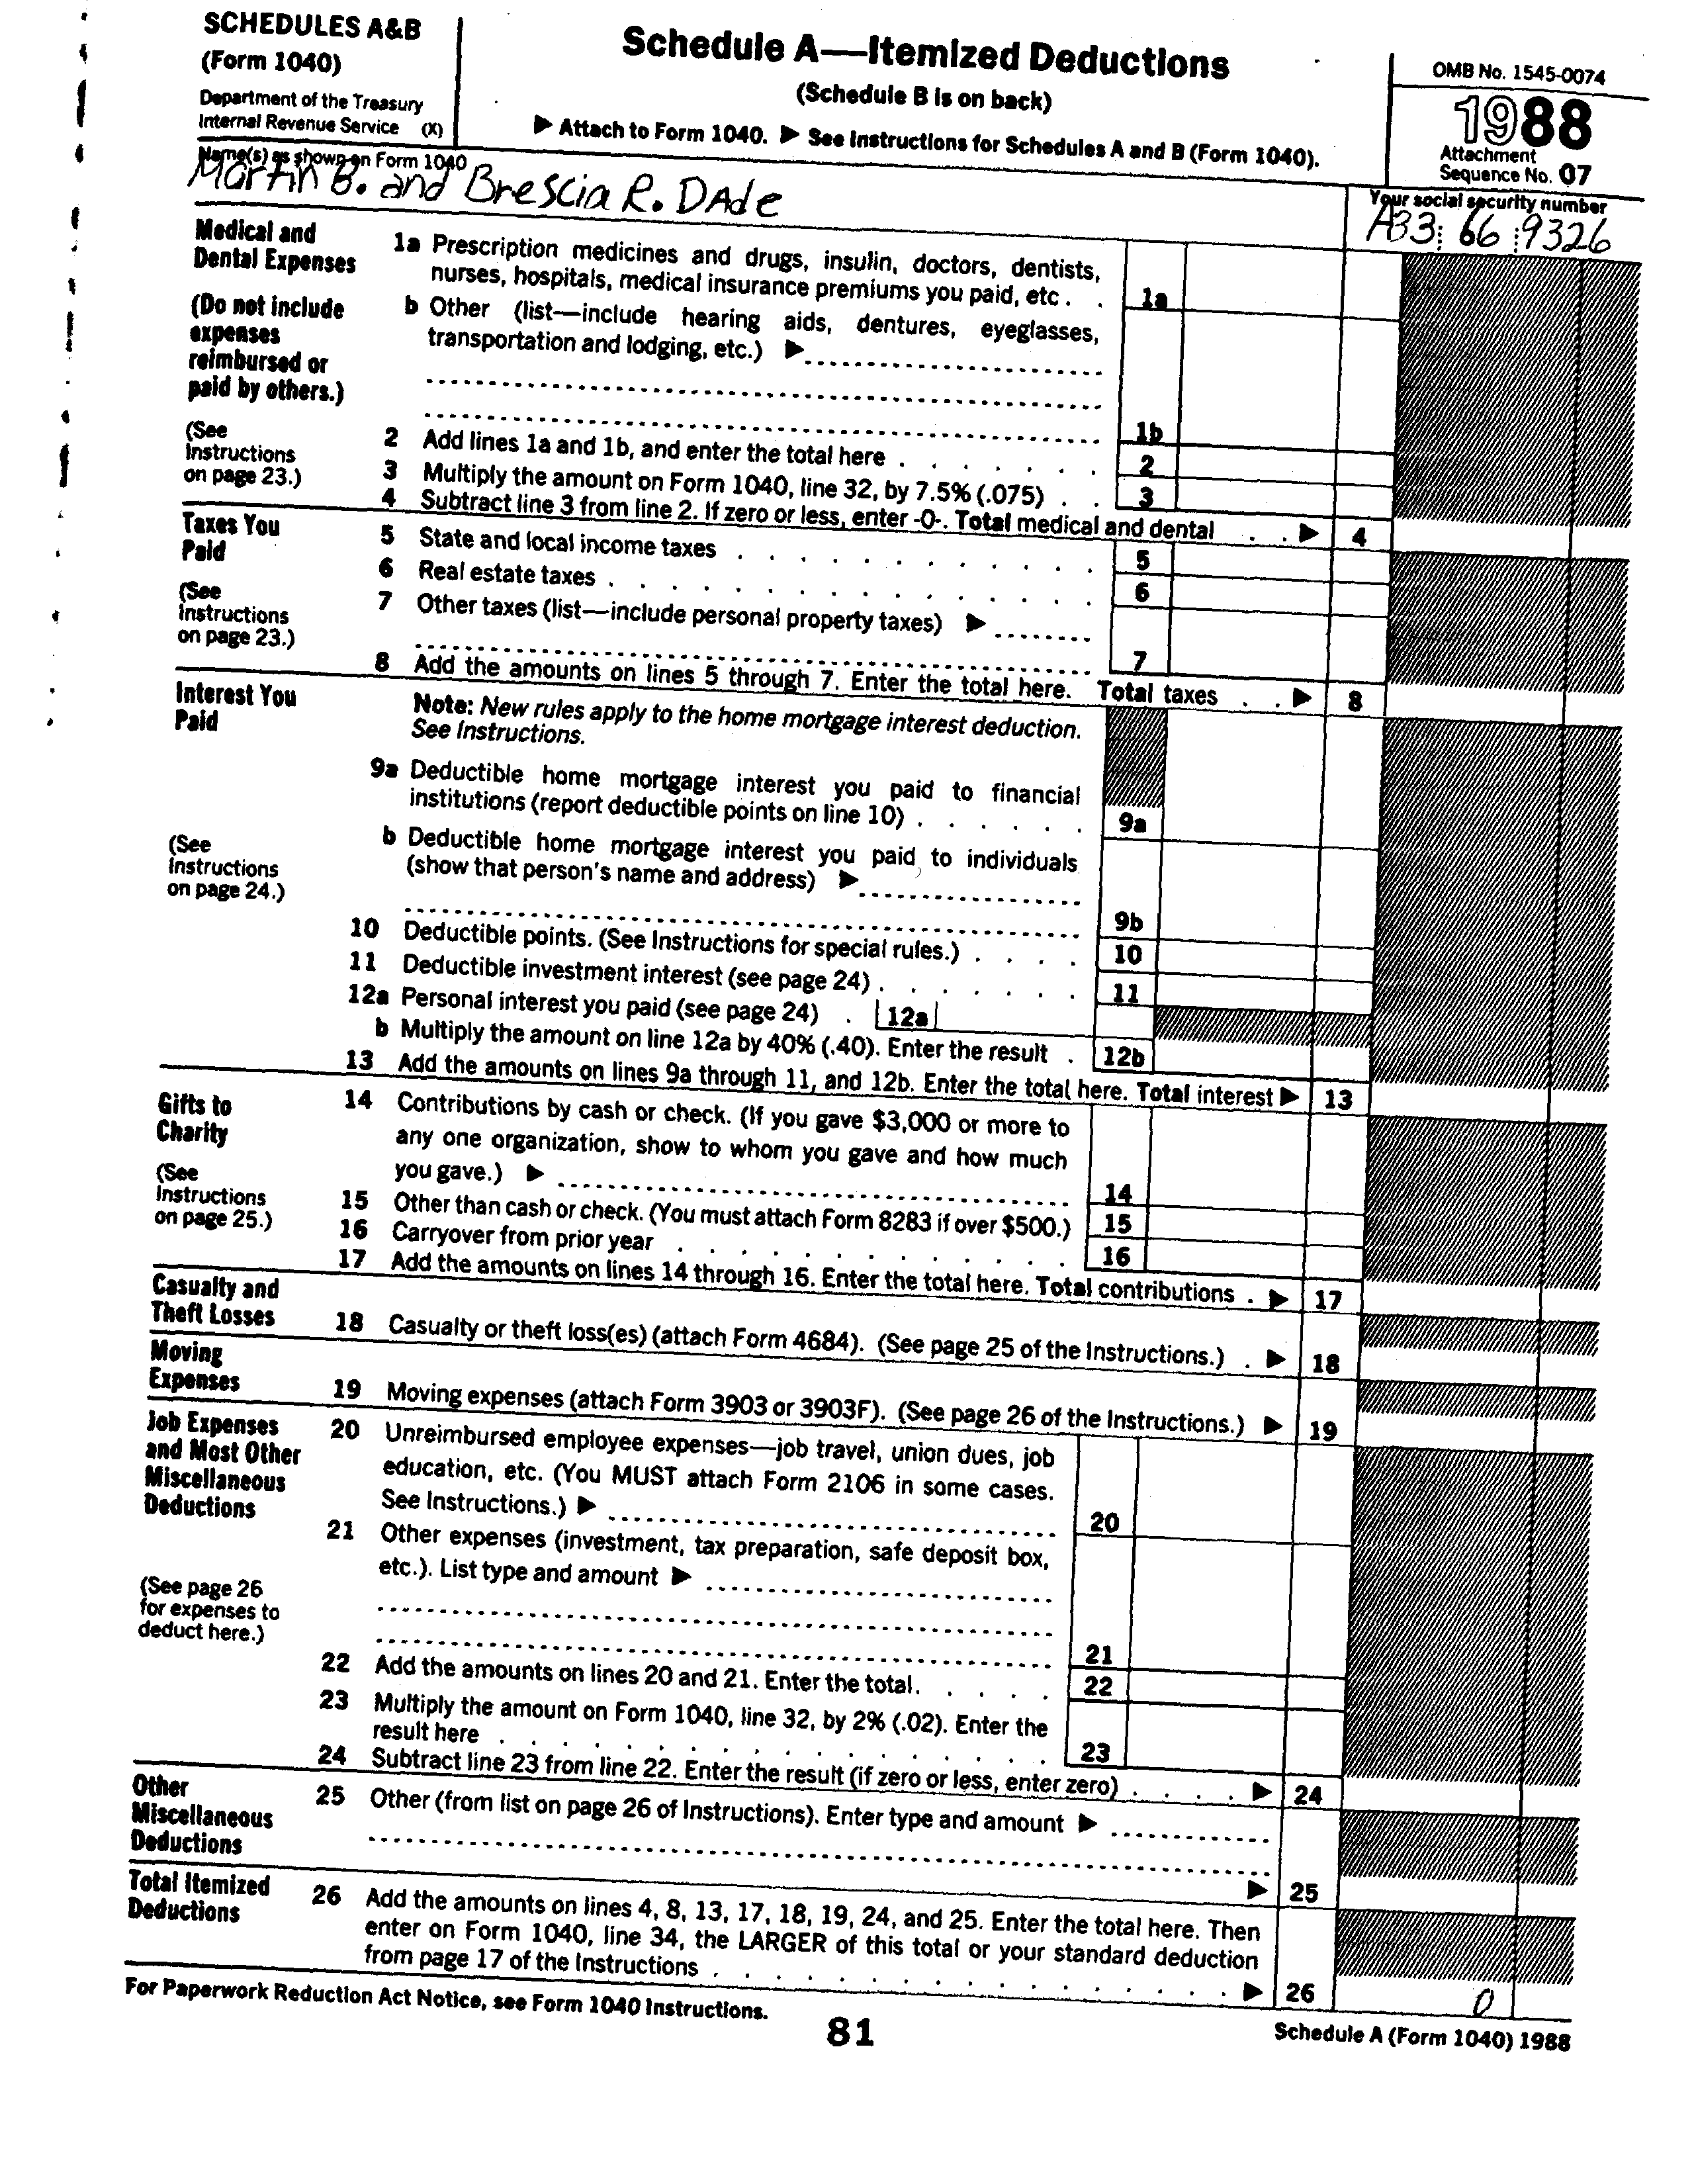 SCHEDULES A&B
(Form 1040)
Department of the Treasury
Internal Revenue Service (X)
Schedule A—Itemized Deductions
(Schedule B is on back)
▶ Attach to Form 1040. ▶ See Instructions for Schedules A and B (Form 1040).
OMB No. 1545-0074
1988
Attachment
Sequence No. 07
Name(s) as shown on Form 1040
Martin B. and Brescia R. DAde
Your social security number
A33 66 9326
Medical and
Dental Expenses
(Do not include
expenses
reimbursed or
paid by others.)
(See
Instructions
on page 23.)
1a Prescription medicines and drugs, insulin, doctors, dentists,
nurses, hospitals, medical insurance premiums you paid, etc. . 1a
b Other (list—include hearing aids, dentures, eyeglasses,
transportation and lodging, etc.) ▶
1b
2 Add lines 1a and 1b, and enter the total here 2
3 Multiply the amount on Form 1040, line 32, by 7.5% (.075) 3
4 Subtract line 3 from line 2. If zero or less, enter -0-. Total medical and dental ▶ 4
Taxes You
Paid
(See
Instructions
on page 23.)
5 State and local income taxes 5
6 Real estate taxes 6
7 Other taxes (list—include personal property taxes) ▶
7
8 Add the amounts on lines 5 through 7. Enter the total here. Total taxes ▶ 8
Interest You
Paid
(See
Instructions
on page 24.)
Note: New rules apply to the home mortgage interest deduction.
See Instructions.
9a Deductible home mortgage interest you paid to financial
institutions (report deductible points on line 10) 9a
b Deductible home mortgage interest you paid to individuals
(show that person's name and address) ▶
9b
10 Deductible points. (See Instructions for special rules.) 10
11 Deductible investment interest (see page 24) 11
12a Personal interest you paid (see page 24) 12a
b Multiply the amount on line 12a by 40% (.40). Enter the result 12b
13 Add the amounts on lines 9a through 11, and 12b. Enter the total here. Total interest ▶ 13
Gifts to
Charity
(See
Instructions
on page 25.)
14 Contributions by cash or check. (If you gave $3,000 or more to
any one organization, show to whom you gave and how much
you gave.) ▶ 14
15 Other than cash or check. (You must attach Form 8283 if over $500.) 15
16 Carryover from prior year 16
17 Add the amounts on lines 14 through 16. Enter the total here. Total contributions ▶ 17
Casualty and
Theft Losses
18 Casualty or theft loss(es) (attach Form 4684). (See page 25 of the Instructions.) ▶ 18
Moving
Expenses
19 Moving expenses (attach Form 3903 or 3903F). (See page 26 of the Instructions.) ▶ 19
Job Expenses
and Most Other
Miscellaneous
Deductions
(See page 26
for expenses to
deduct here.)
20 Unreimbursed employee expenses—job travel, union dues, job
education, etc. (You MUST attach Form 2106 in some cases.
See Instructions.) ▶ 20
21 Other expenses (investment, tax preparation, safe deposit box,
etc.). List type and amount ▶
21
22 Add the amounts on lines 20 and 21. Enter the total 22
23 Multiply the amount on Form 1040, line 32, by 2% (.02). Enter the
result here 23
24 Subtract line 23 from line 22. Enter the result (if zero or less, enter zero) ▶ 24
Other
Miscellaneous
Deductions
25 Other (from list on page 26 of Instructions). Enter type and amount ▶
▶ 25
Total Itemized
Deductions
26 Add the amounts on lines 4, 8, 13, 17, 18, 19, 24, and 25. Enter the total here. Then
enter on Form 1040, line 34, the LARGER of this total or your standard deduction
from page 17 of the Instructions ▶ 26 0
For Paperwork Reduction Act Notice, see Form 1040 Instructions.
81
Schedule A (Form 1040) 1988